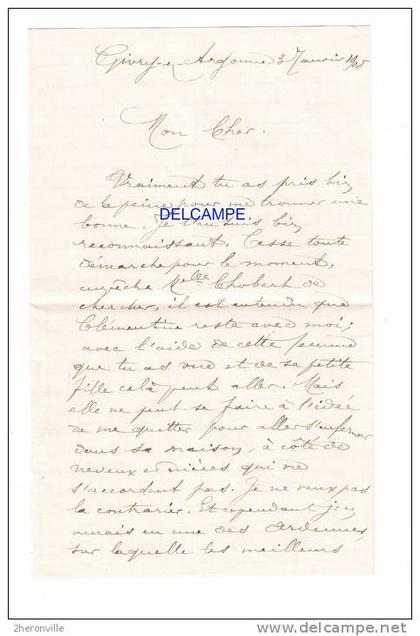 Givry-en-Argonne 3 Janvier 1908
Mon Cher.
Vraiment tu as pris bien
de la peine pour me trouver une
bonne. Je t'en suis bien
DELCAMPE.
reconnaissant. Cesse toute
démarche pour le moment,
empêche Melle Chobert de
chercher, il est entendu que
Clémentine reste avec moi;
avec l'aide de cette femme
que tu as vue et de sa petite
fille celà peut aller. Mais
elle ne peut se faire à l'idée
de me quitter pour aller s'enfermer
dans sa maison, à côté de
neveux et nièces qui ne
s'accordent pas. Je ne veux pas
la contrarier. Et cependant j'en
aurais eu une des Ardennes,
sur laquelle les meilleurs
© 2heronville
delcampe.net